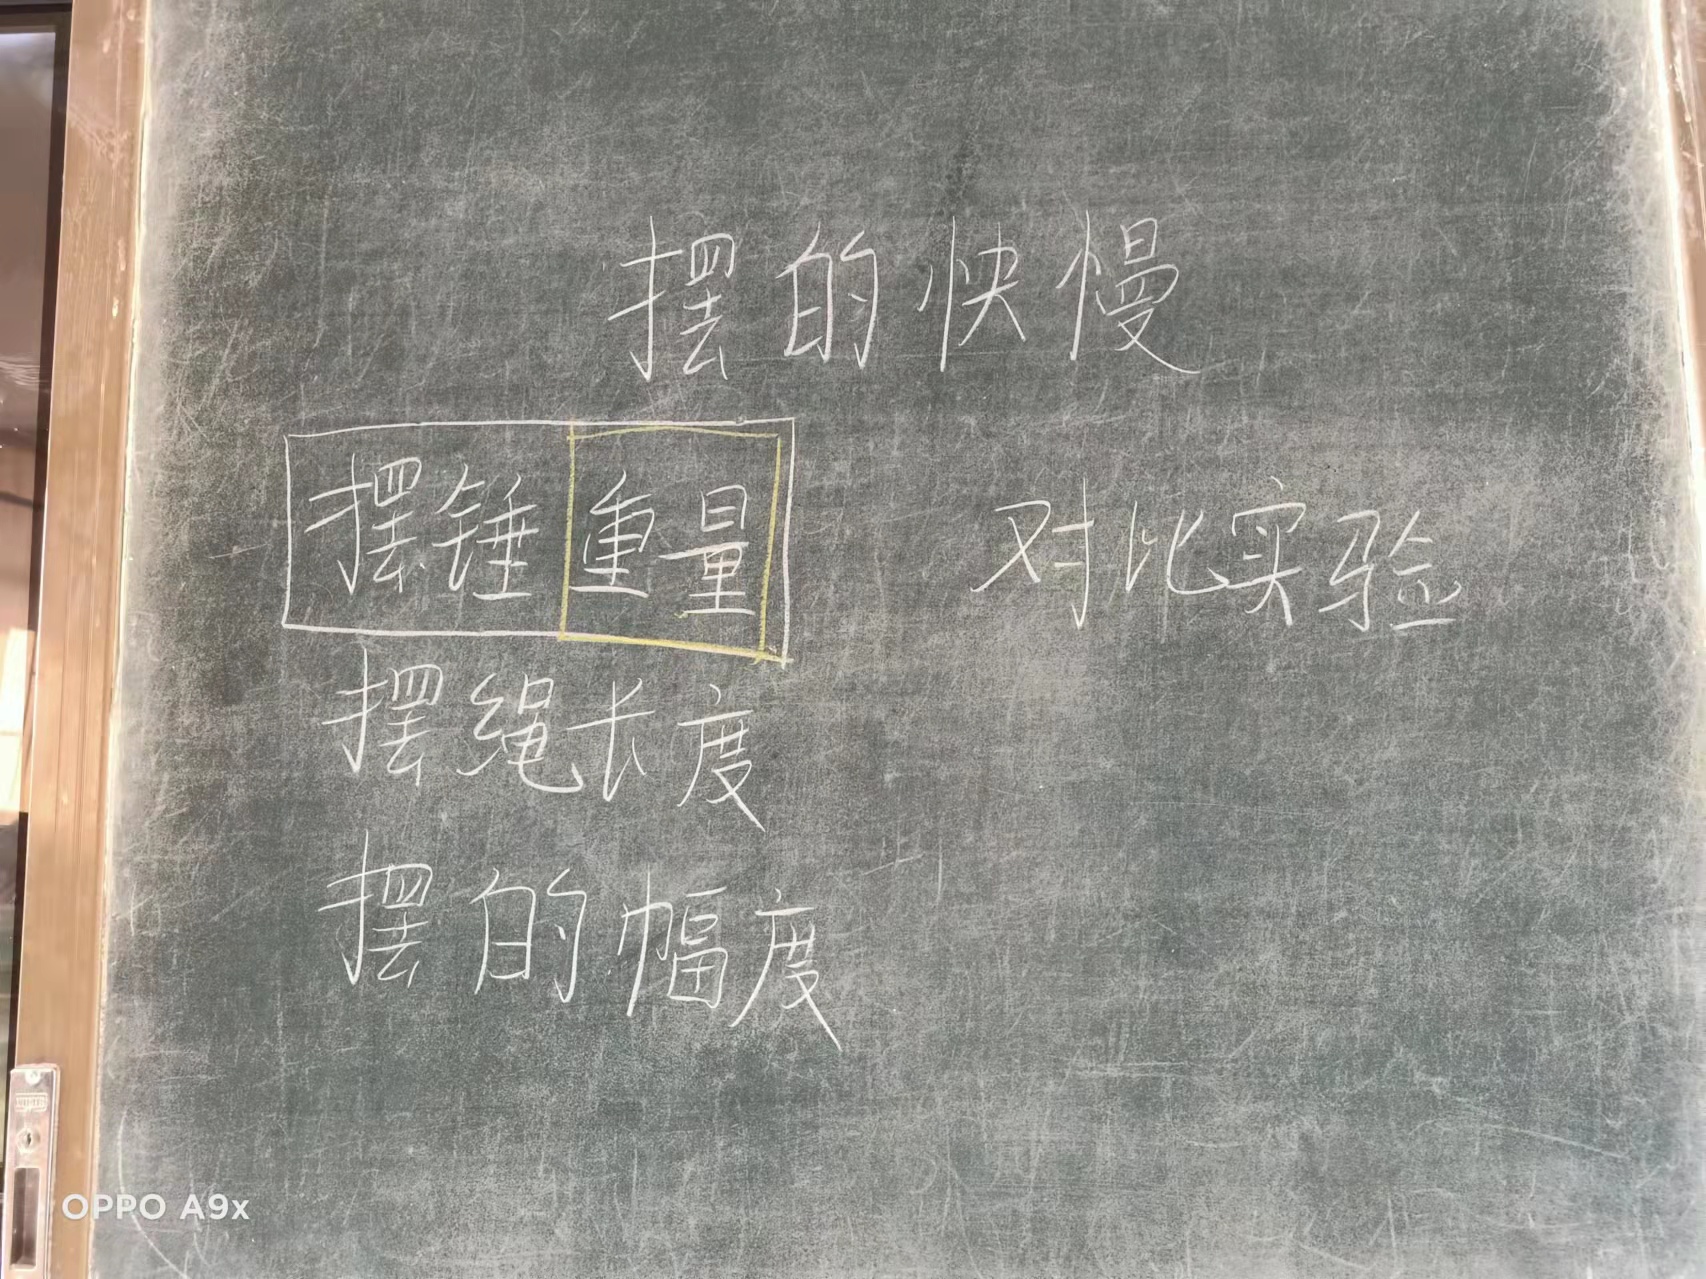 摆的快慢
摆锤重量
对比实验
摆绳长度
摆的幅度
OPPO A9x